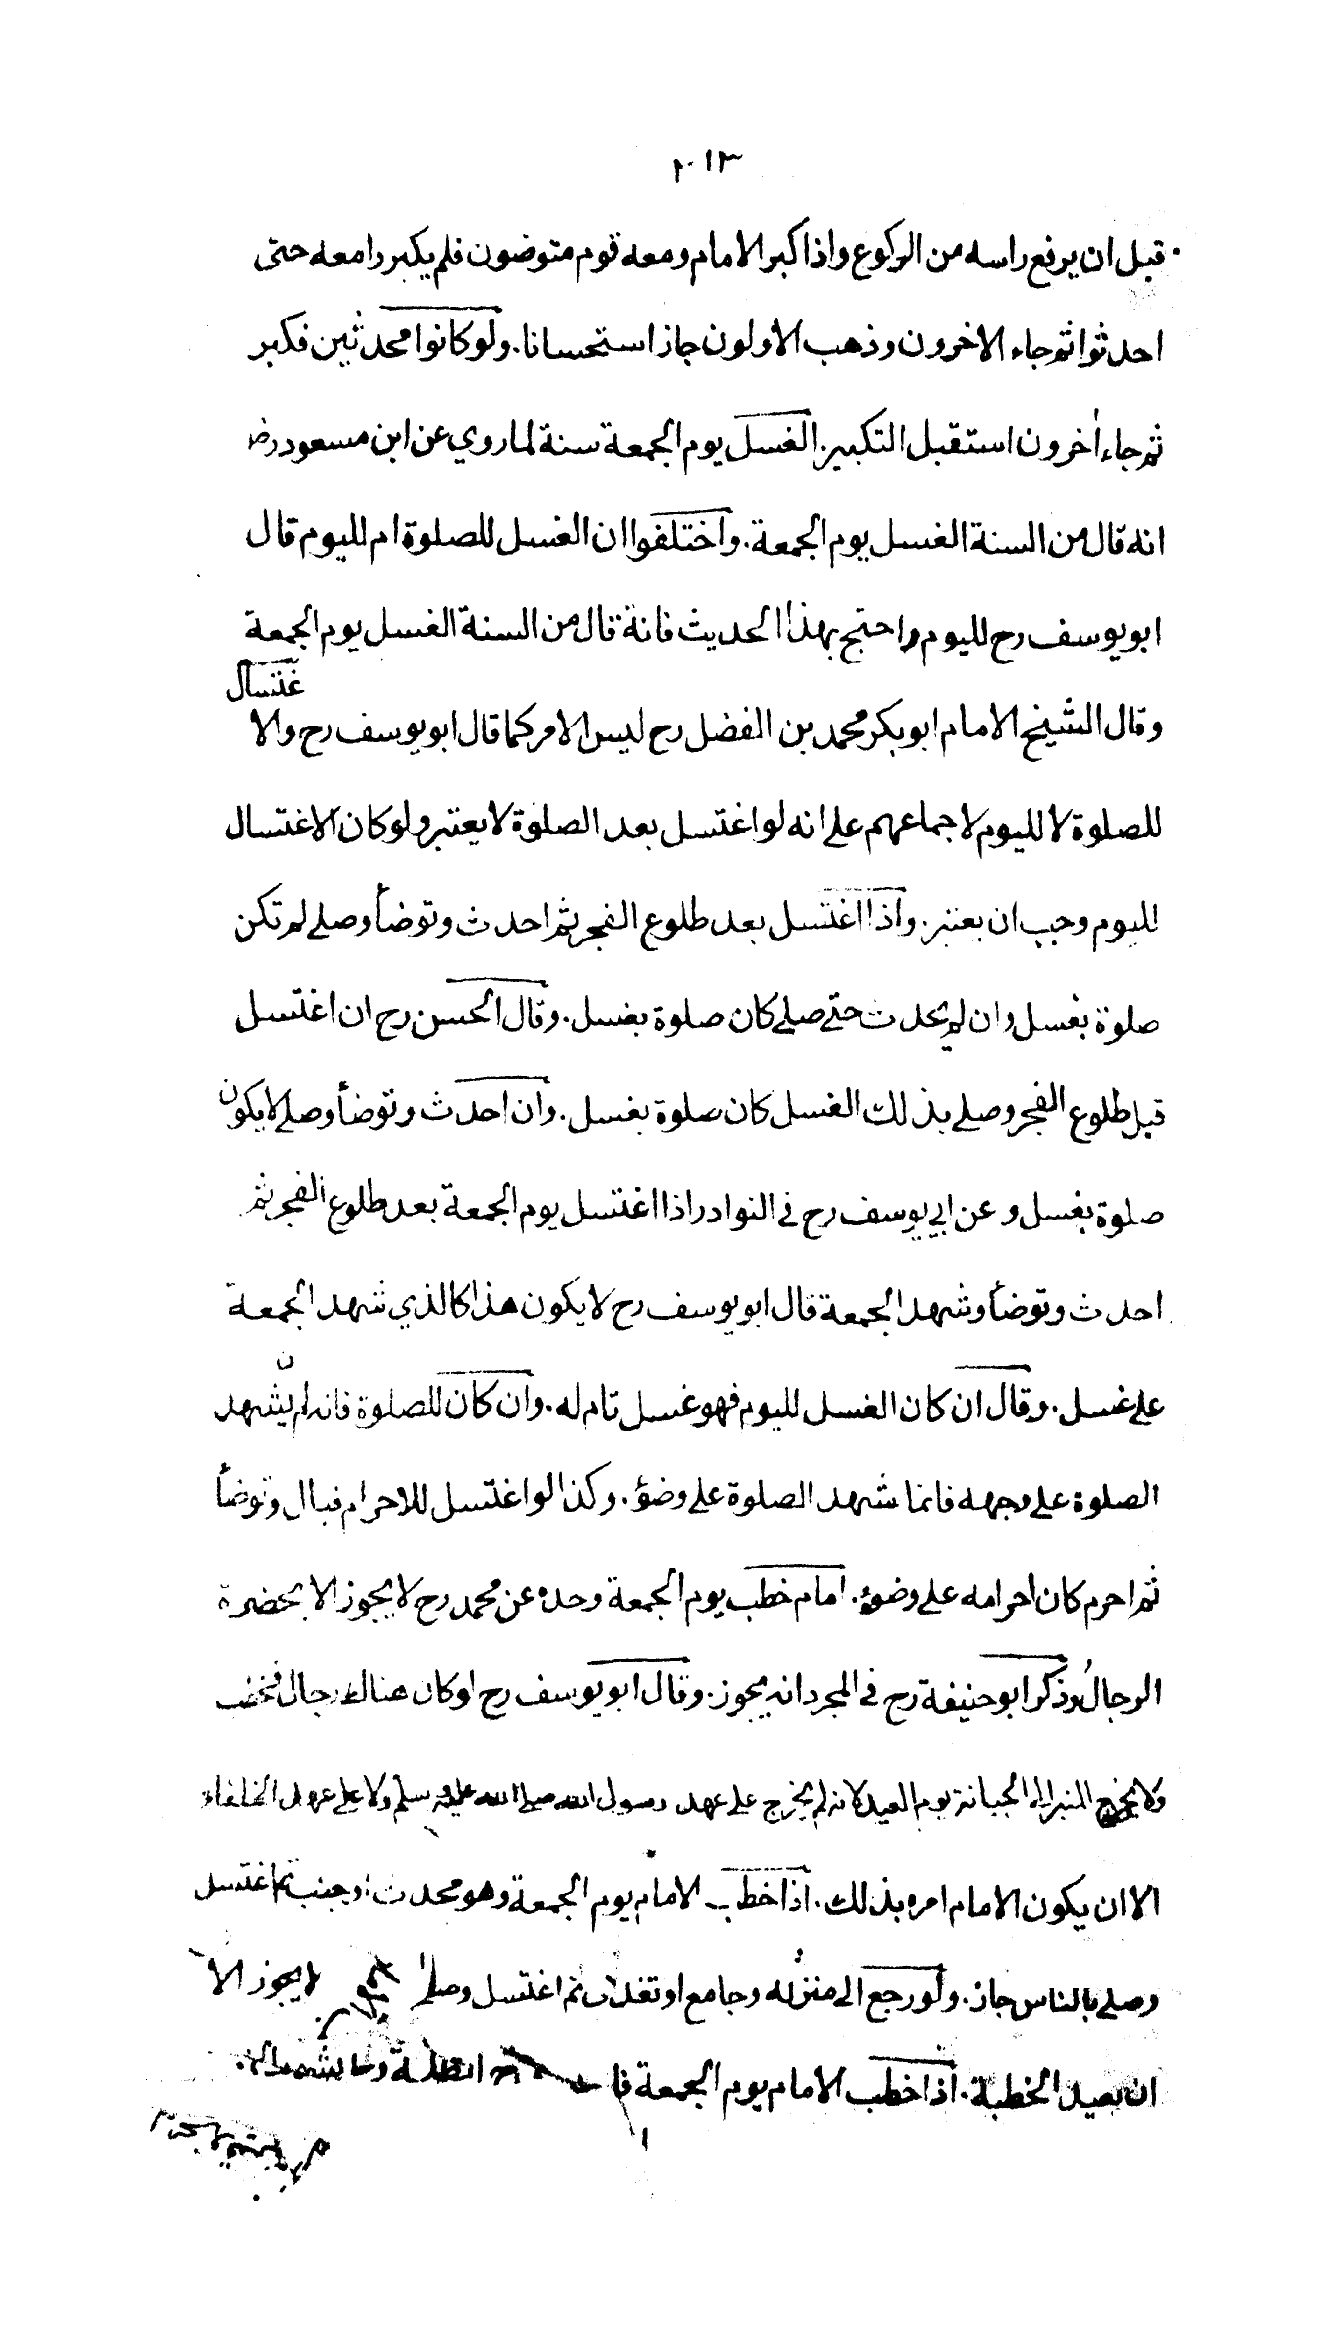 قبل ان يرفع راسه من الركوع واذا كبر الامام ومعه قوم متوضون فلم يكبروا معه حتى
احدثوا ثم جاء الاخرون وذهب الاولون جاز استحسانا. ولو كانوا محدثين فكبر
ثم جاء أخرون استقبل التكبير. الغسل يوم الجمعة سنة لما روي عن ابن مسعود رض
انه قال من السنة الغسل يوم الجمعة. واختلفوا ان الغسل للصلوة ام لليوم قال
ابو يوسف رح لليوم واحتج بهذا الحديث فانة قال من السنة الغسل يوم الجمعة
وقال الشيخ الامام ابو بكر محمد بن الفضل رح ليس الامر كما قال ابو يوسف رح والا غتسال
للصلوة لا لليوم لاجماعهم على انه لو اغتسل بعد الصلوة لا يعتبر ولو كان الاغتسال
لليوم وجب ان يعتبر. واذا اغتسل بعد طلوع الفجر ثم احدث وتوضأ وصلى لم تكن
صلوة بغسل وان لم يحدث حتى صلى كان صلوة بغسل. وقال الحسن رح ان اغتسل
قبل طلوع الفجر وصلى بذلك الغسل كان صلوة بغسل. وان احدث وتوضأ وصلى لا يكون
صلوة بغسل وعن ابي يوسف رح في النوادر اذا اغتسل يوم الجمعة بعد طلوع الفجر ثم
احدث وتوضأ وشهد الجمعة قال ابو يوسف رح لا يكون هذا كالذي شهد الجمعة
على غسل. وقال ان كان الغسل لليوم فهو غسل تام له. وان كان للصلوة فانه لم يشهد
الصلوة على وجهه فانما شهد الصلوة على وضؤ. وكذا لو اغتسل للاحرام فبال وتوضأ
ثم احرم كان احرامه على وضوء. امام خطب يوم الجمعة وحده عن محمد رح لا يجوز الا بحضرة
الرجال وذكر ابو حنيفة رح في المجرد انه يجوز. وقال ابو يوسف رح لو كان هناك رجال
ولا يخرج المنبر الى الجبانة يوم العيد لانه لم يخرج على عهد رسول الله صلى الله عليه وسلم ولا على عهد الخلفاء
الا ان يكون الامام امره بذلك. اذا خطب الامام يوم الجمعة وهو محدث او جنب ثم اغتسل
وصلى بالناس جاز. ولو رجع الى منزله وجامع او تغدى ثم اغتسل وصلى لا يجوز الا
ان يعيد الخطبة. اذا خطب الامام يوم الجمعة